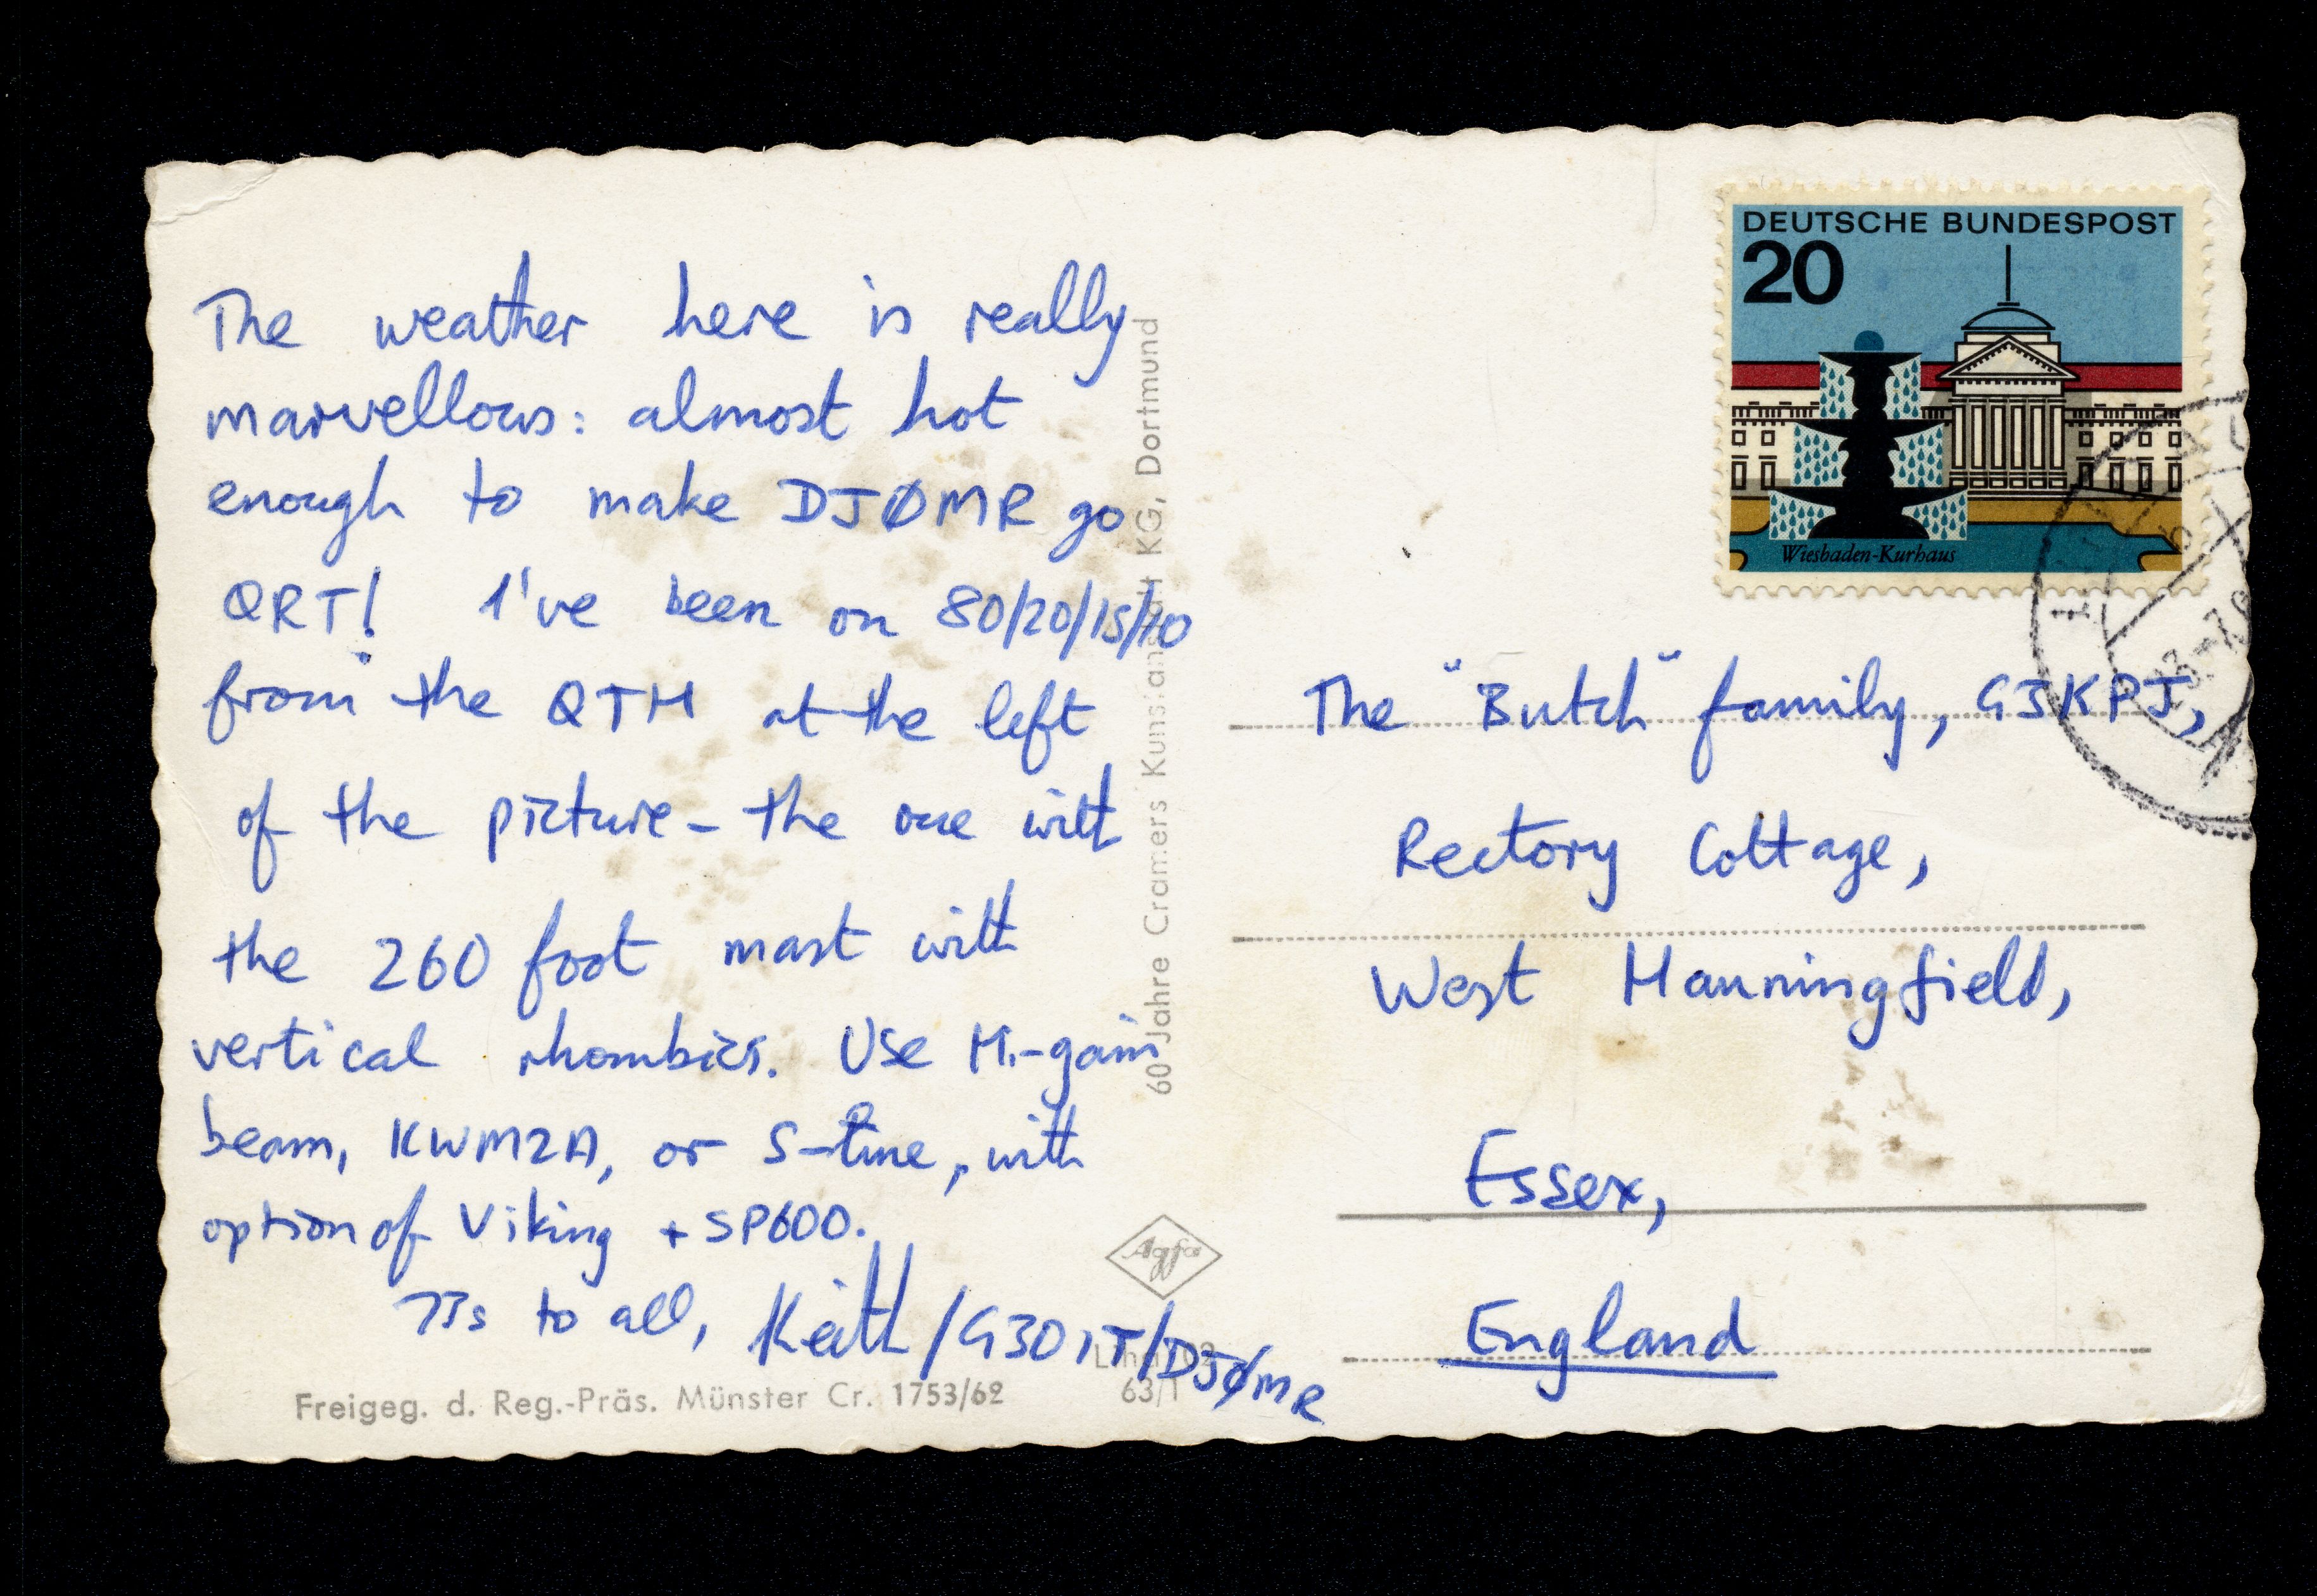 The weather here is really
marvellous: almost hot
enough to make DJØMR go
QRT! I've been on 80/20/15/10
from the QTH at the left
of the picture - the one with
the 260 foot mast with
vertical rhombics. Use Hi-gain
beam, KWM2A, or S-line, with
option of Viking + SP600.
73s to all, Keith/G3OIT/DJØMR
Freigeg. d. Reg.-Präs. Münster Cr. 1753/62
63/1
60 Jahre Cramers Kunstanstalt KG, Dortmund
Agfa
DEUTSCHE BUNDESPOST
20
Wiesbaden-Kurhaus
The "Butch" family, G3KPJ,
Rectory Cottage,
West Hanningfield,
Essex,
England